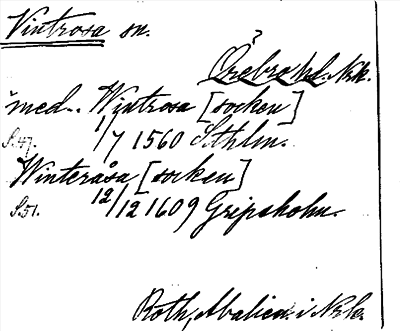 Vintrosa sn.
?
Örebro hd. Nrk.
med.. Wintrosa [socken]
S.47. 1/7 1560 Sthlm.
Winteråsa [socken]
S.51. 12/12 1609 Gripsholm.
Roth, Abalien i Nrk.